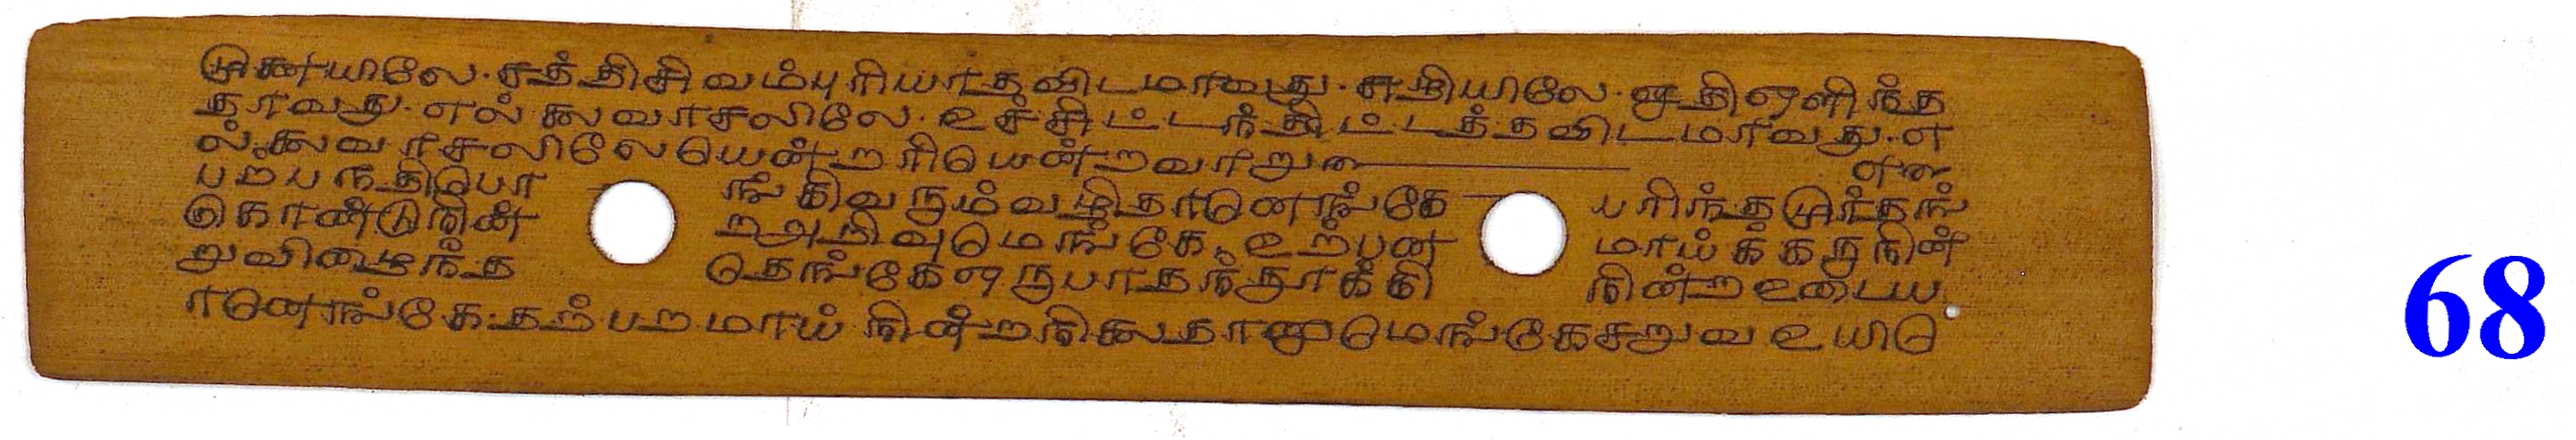 முனையிலே. சத்திசிவம்புரியாத விடமாவது. சுதியிலே. ஒதிஒளிந்த
தாவது. எல்கைவாசலிலே. உச்சிட்டந்திட்டத்தவிடமாவது. எ
ல்கைவாசலிலேயென்றரியென்றவாறு
பறபநதிபொ ங்கிவரும்வழிதானெங்கே பரிந்தமூர்தங்
கொண்டுநின் றஅறிவுமெங்கே. உற்பன மாய்க்கருநின்
றுவிழைந்த தெங்கேஒருபாதந்தூக்கி நின்றஉடைய
ானெங்கே. தற்பறமாய் நின்றநிலைதானுமெங்கேசறுவஉயிரெ
68